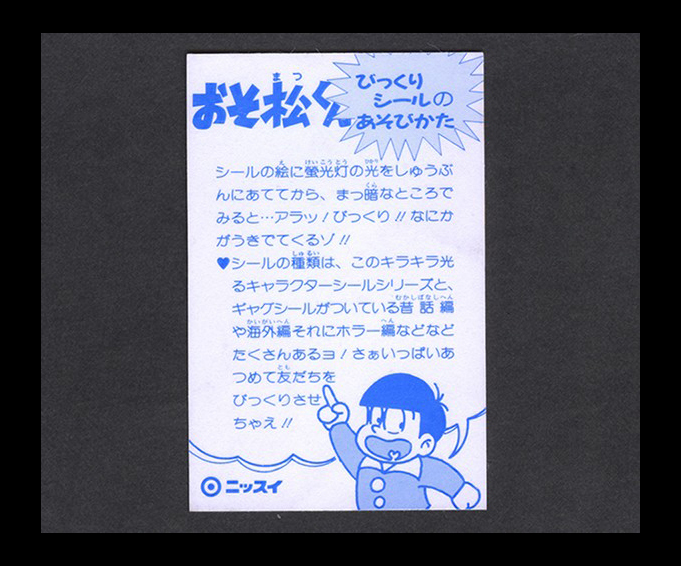 おそ松くん
まつ
びっくり
シールの
あそびかた
シールの絵に螢光灯の光をしゅうぶ
え けいこうとう ひかり
んにあててから、まっ暗なところで
くら
みると…アラッ!びっくり!!なにか
がうきでてくるゾ!!
♥シールの種類は、このキラキラ光
しゅるい
るキャラクターシールシリーズと、
ギャグシールがついている昔話編
むかしばなしへん
や海外編それにホラー編などなど
かいがいへん へん
たくさんあるヨ!さぁいっぱいあ
つめて友だちを
とも
びっくりさせ
ちゃえ!!
ニッスイ